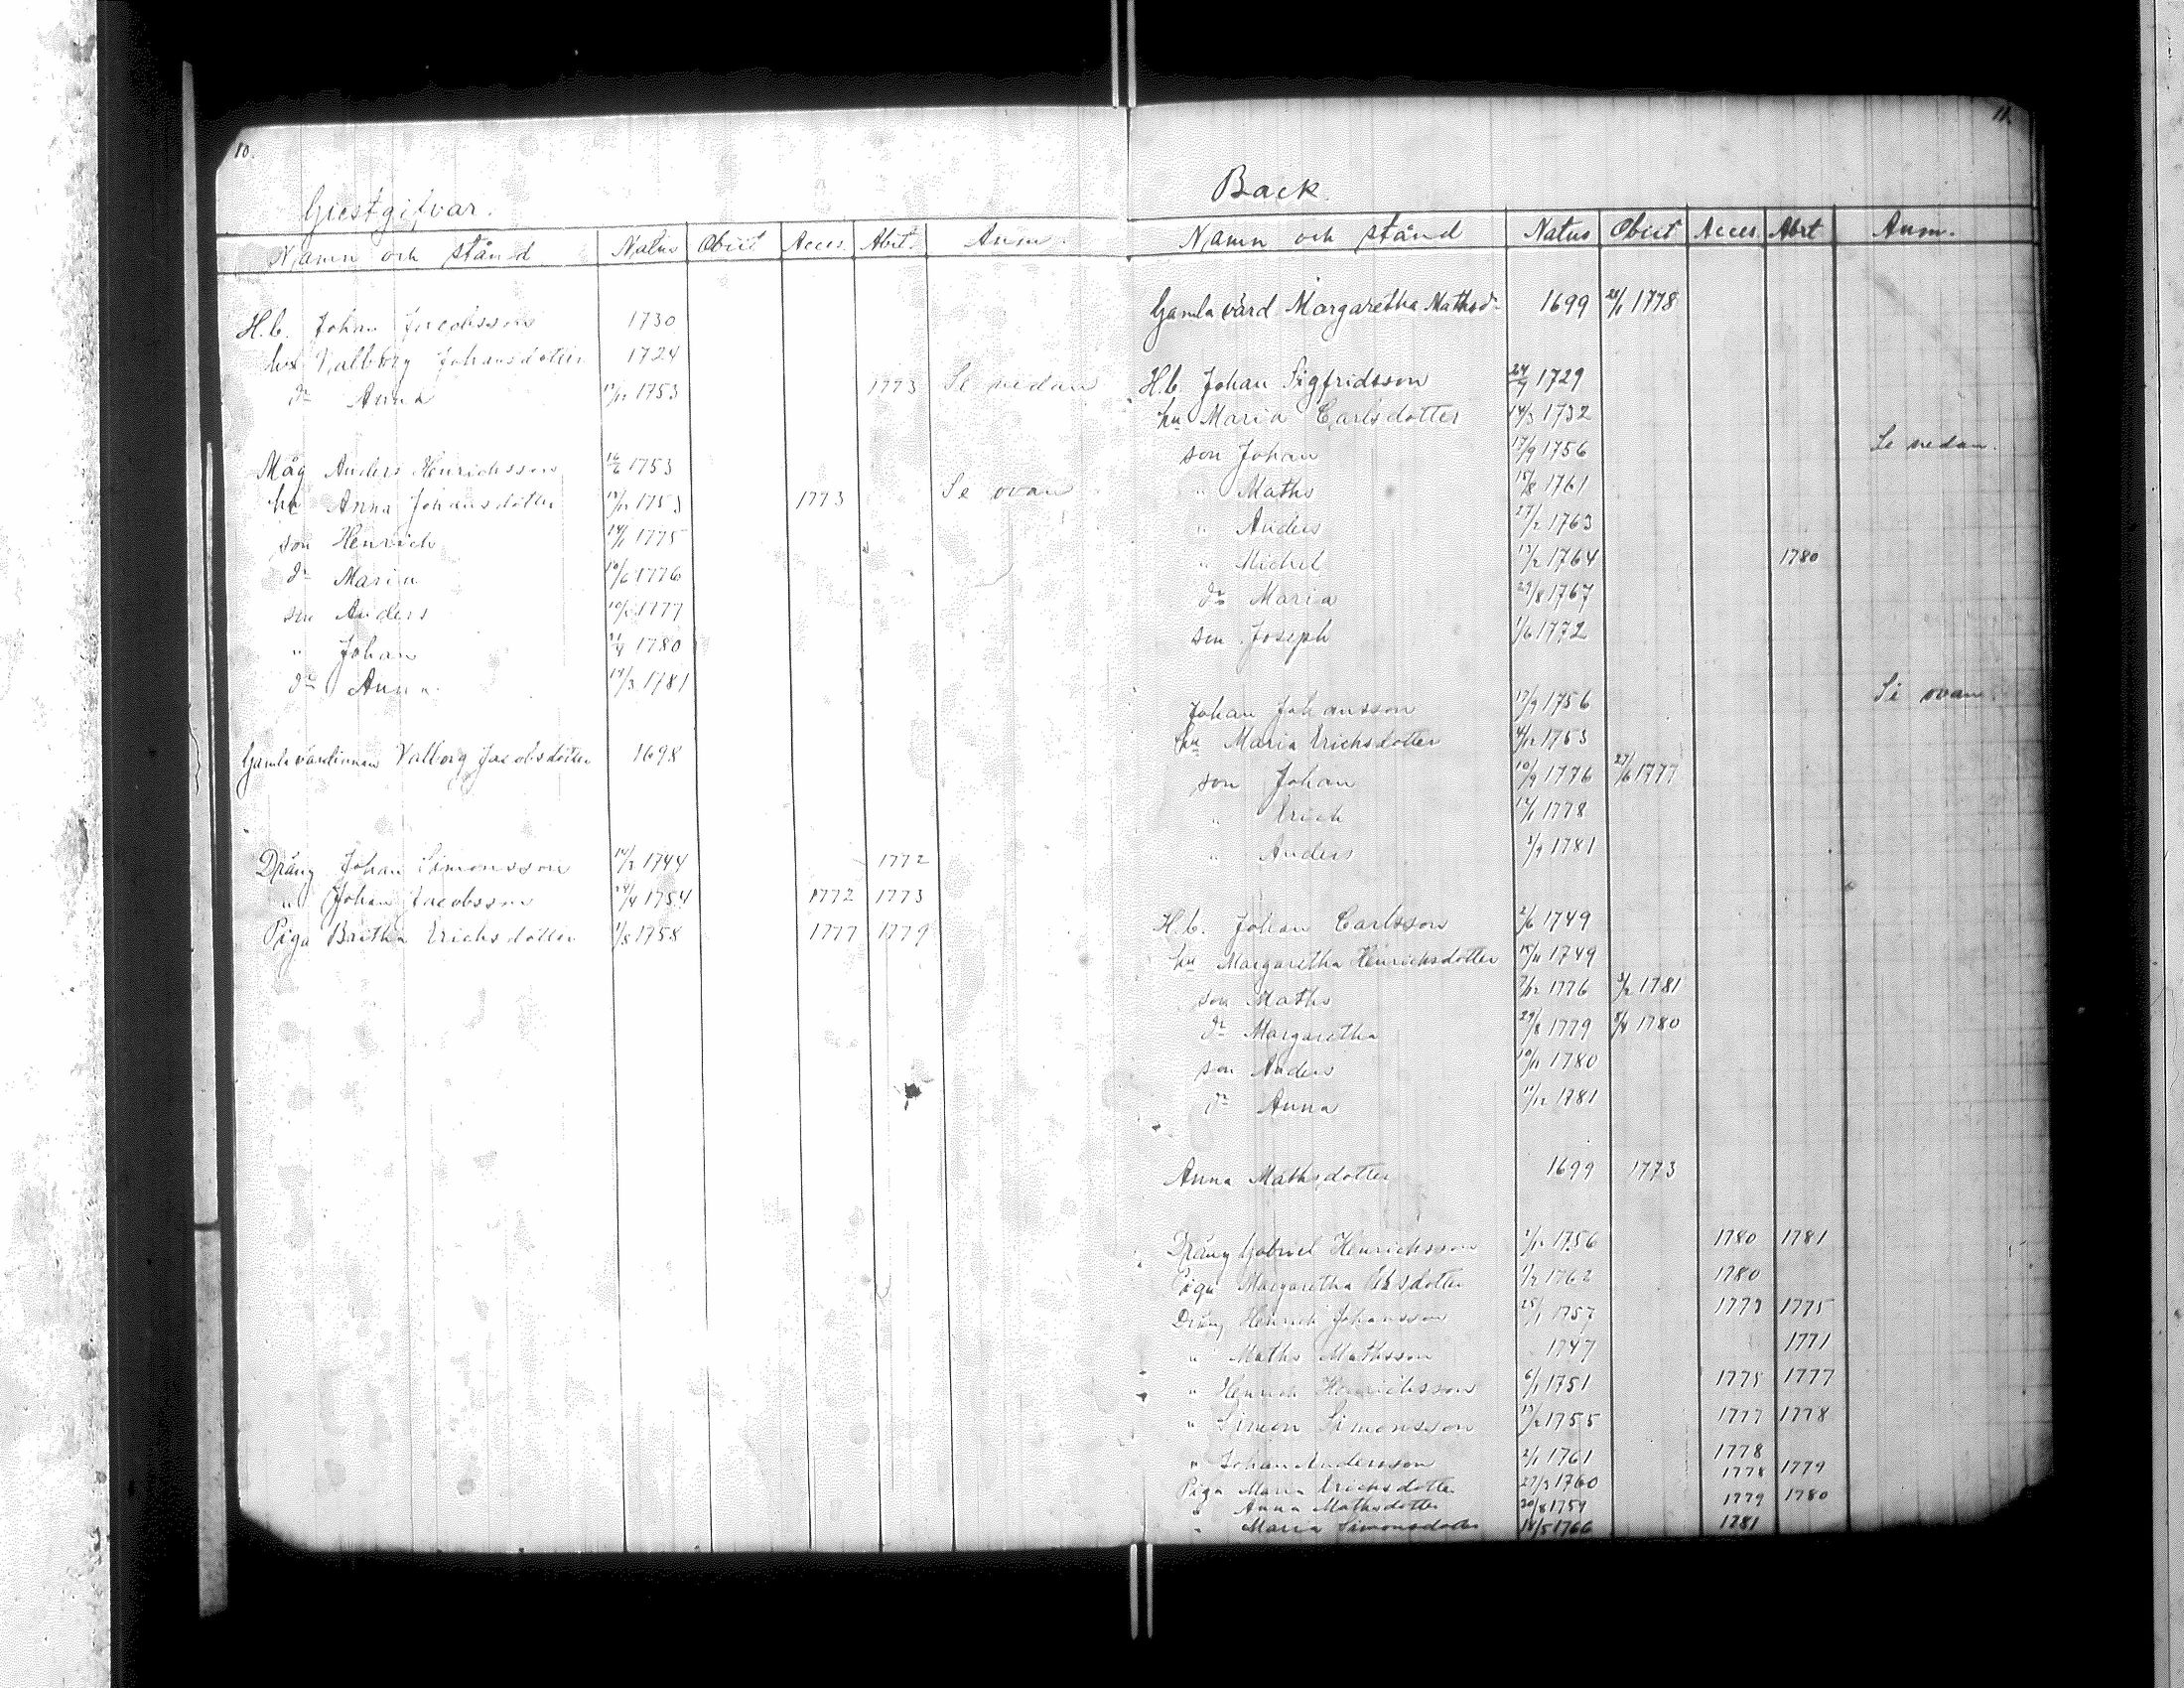 10.
Giestgifvar.
Namn och stånd Natus Obiit Acces. Abit. Anm.
H.b. Johan Jacobsson 1730
hu Valborg Johansdotter 1724
dr Anna 17/12 1753 1773 Se nedan
Måg Anders Henrichsson 16/6 1753
hu Anna Johansdotter 17/12 1753 1773 Se ovan
son Henrich 1775
dr Maria 1776
son Anders 1777
" Johan 1780
dr Anna 1781
Gamla värdinnan Valborg Jacobsdotter 1698
Dräng Johan Simonsson 1744 1772
" Johan Jacobsson 1754 1772 1773
Piga Britha Erichsdotter 1/8 1758 1777 1779
11.
Back.
Namn och stånd Natus Obiit Acces. Abit Anm.
Gamla värd Margaretha Mathsdr 1699 1778
H.b Johan Sigfridsson 24/9 1729
hu Maria Carlsdotter 14/3 1732
son Johan 17/9 1756 Se nedan.
" Maths 15/8 1761
" Anders 27/2 1763
" Michel 13/2 1764 1780
dr Maria 27/8 1767
son Joseph 1/6 1772
Johan Johansson 17/9 1756 Se ovan.
hu Maria Erichsdotter 4/12 1753
son Johan 10/9 1776 27/6 1777
" Erich 12/1 1778
" Anders 1781
H.b. Johan Carlsson 2/6 1749
hu Margaretha Henrichsdotter 18/11 1749
son Maths 7/12 1776 3/2 1781
dr Margaretha 29/8 1779 8/4 1780
son Anders 10/11 1780
dr Anna 11/12 1781
Anna Mathsdotter 1699 1773
Dräng Gabriel Henrichsson 1756 1780 1781
Piga Margaretha 1762 1780
Dräng Henrich Johansson 25/1 1757 1773 1775
" Maths Mathsson 1747 1771
" Henrich Henrichsson 6/1 1751 1775 1777
" Simon Simonsson 13/2 1755 1777 1778
" Johan Andersson 2/1 1761 1778
Piga Maria Erichsdotter 27/3 1760 1778 1779
" Anna Mathsdotter 20/8 1754 1779 1780
" Maria Simonsdotter 18/5 1766 1781